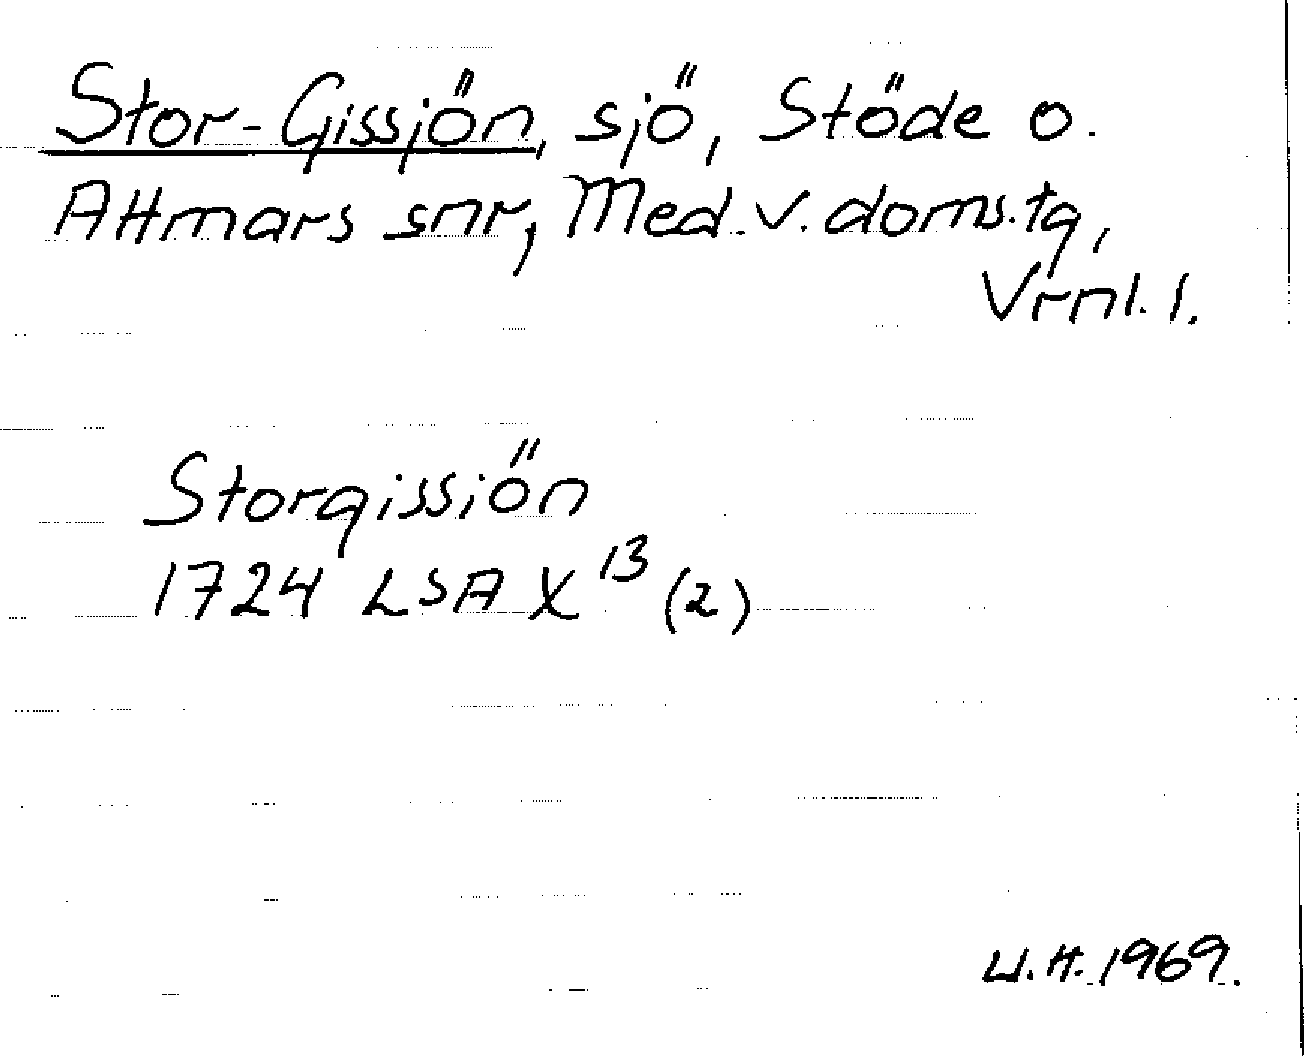 Stor-Gissjön, sjö, Stöde o.
Attmars snr, Med. v. doms.tg,
Vrnl. l.
Storgissiön
1724 LSA X 13 (2)
U.H. 1969.